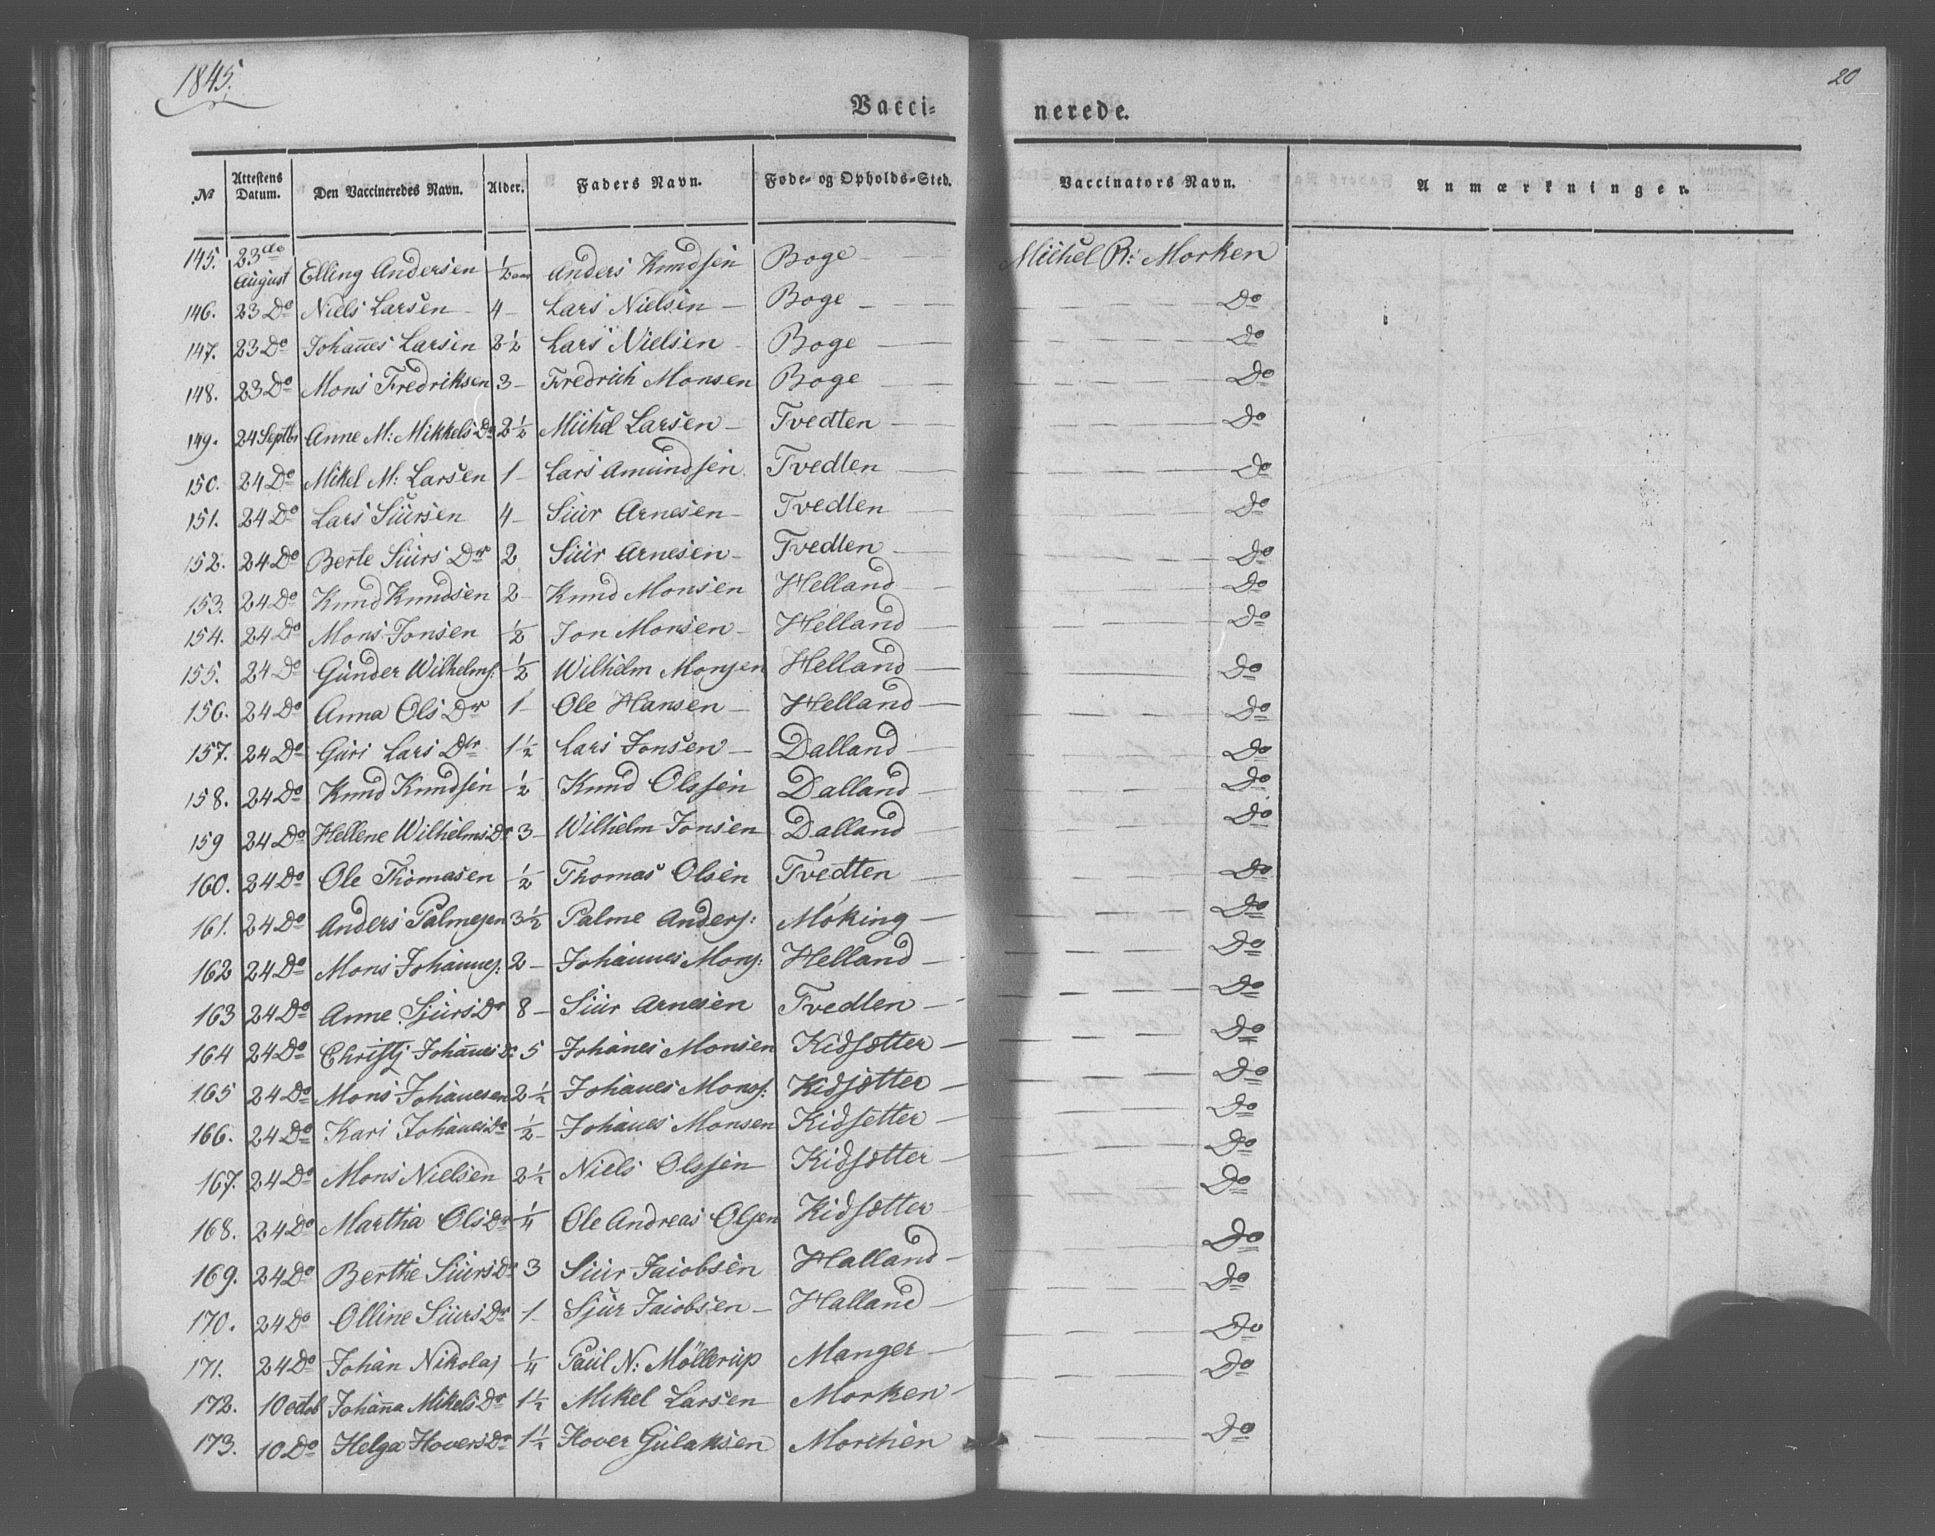 1845.
20
Vacci= nerede.
№ Attestens Datum. Den Vaccineredes Navn. Alder. Faders Navn. Føde- og Opholds-Sted. Vaccinators Navn. Anmærkninger.
145. 23de August Elling Andersen ½ aar Anders Knudsen Boge Michel R: Morken
146. 23 Do Niels Larsen 4 Lars Nielsen Boge Do
147. 23 Do Johan̄es Larsen 2½ Lars Nielsen Boge Do
148. 23 Do Mons Fredriksen 3 Fredrich Monsen Boge Do
149. 24 Septbr Anne M: Mikkels Dr 2½ Michel Larsen Tvedten Do
150. 24 Do Mikel M: Larsen 1 Lars Amundsen Tvedten Do
151. 24 Do Lars Siursen 4 Siur Arnesen Tvedten Do
152. 24 Do Berte Siurs Dr 2 Siur Arnesen Tvedten Do
153. 24 Do Knud Knudsen 2 Knud Monsen Helland Do
154. 24 Do Mons Jonsen ½ Jon Monsen Helland Do
155. 24 Do Gunder Wilhelms: ½ Wilhelm Monsen Helland Do
156. 24 Do Anna Ols Dr 1 Ole Hansen Helland Do
157. 24 Do Guri Lars Dtr 1½ Lars Jonsen Dalland Do
158. 24 Do Knud Knudsen ½ Knud Olssen Dalland Do
159 24 Do Hellene Wilhelms Dr 3 Wilhelm Jonsen Dalland Do
160. 24 Do Ole Thomasen ½ Thomas Olsen Tvedten Do
161. 24 Do Anders Palmesen 3½ Palme Anders: Møking Do
162 24 Do Mons Johannes: 2 Johannes Mons: Helland Do
163 24 Do Anne Sjurs Dr 8 Siur Arnesen Tvedten Do
164 24 Do Christj Johan̄es Dr 5 Johanes Monsen Kidsætter Do
165 24 Do Mons Johanesen 2½ Johanes Mons: Kidsætter Do
166. 24 Do Kari Johanes Dr ½ Johanes Monsen Kidsetter Do
167. 24 Do Mons Nielsen 2½ Niels Olssen Kidsætter Do
168. 24 Do Martha Ols Dr ¼ Ole Andreas Olsen Kidsætter Do
169. 24 Do Berthe Siurs Dr 3 Siur Jaiobsen Halland Do
170. 24 Do Olline Siurs Dr 1 Sjur Jaiobsen Halland Do
171. 24 Do Johan Nikolaj ¼ Paul N: Møllerup Manger Do
172. 10 octob Johan̄a Mikels Dr 1½ Mikel Larsen Morken Do
173. 10 Do Helga Hovers Dr 1½ Hover Gulaksen Morchen Do